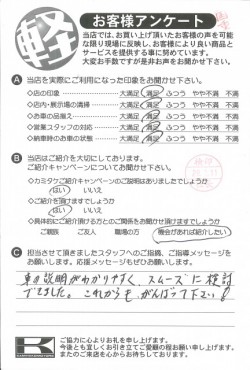 軽
お客様アンケート
当店では、お買い上げ頂いたお客様の声を可能
な限り現場に反映し、お客様により良い商品と
サービスを提供する事に努めています。
大変お手数ですが是非お声をお聞かせ下さい。
A 当店を実際にご利用になった印象をお聞かせ下さい。
◇店の印象 大満足 満足 ふつう やや不満 不満
◇店内・展示場の清掃 大満足 満足 ふつう やや不満 不満
◇お車の品揃え 大満足 満足 ふつう やや不満 不満
◇営業スタッフの対応 大満足 満足 ふつう やや不満 不満
◇納車時のお車の状態 大満足 満足 ふつう やや不満 不満
B 当店はご紹介を大切にしております。
ご紹介キャンペーンについてお聞かせ下さい。
◇カミタケご紹介キャンペーンのご説明はありましたでしょうか
はい いいえ
◇ご紹介を頂けますでしょうか
はい いいえ
◇具体的にご紹介頂ける方とのご関係をお聞かせ頂けますでしょうか
ご親族 ご友人 職場の方 機会があれば紹介したい
C 担当させて頂きましたスタッフへのご指摘、ご指導等を
お願いします。応援メッセージもぜひお願いします。
車の説明がわかりやすく、スムーズに検討
できました。これからも、がんばって下さい!
K
ご協力に心よりお礼を申し上げます。
今後とも宜しくお引き立てご愛顧の程お願い申し上げます。
またのご来店を心からお待ちしております。